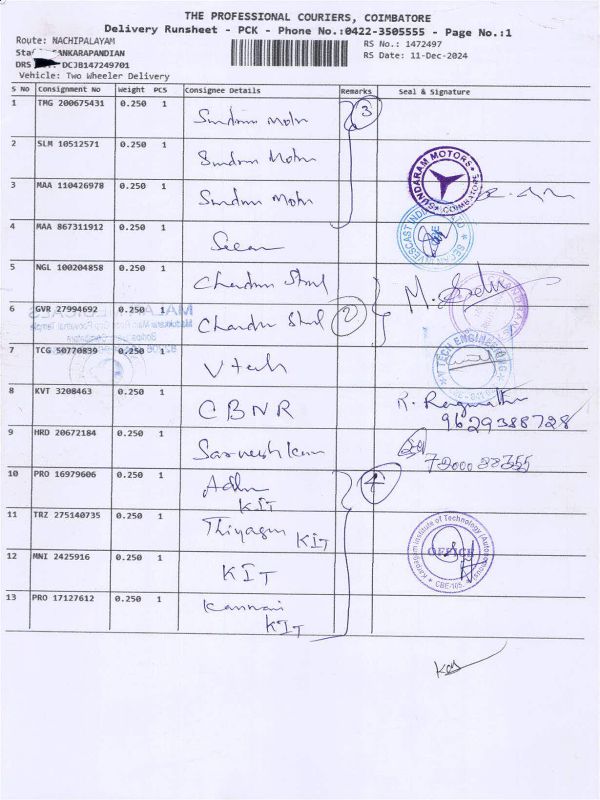 THE PROFESSIONAL COURIERS, COIMBATORE
Delivery Runsheet - PCK - Phone No.:0422-3505555 - Page No.:1
Route: NACHIPALAYAM
RS No.: 1472497
ANKARAPANDIAN
RS Date: 11-Dec-2024
DRS DCJB147249701
Vehicle: Two Wheeler Delivery
S No Consignment No Weight PCS Consignee Details Remarks Seal & Signature
1 TMG 200675431 0.250 1 Sundram Motor 3
2 SLM 10512571 0.250 1 Sundram Motor
3 MAA 110426978 0.250 1 Sundram Motor
SUNDARAM MOTORS
COIMBATORE
4 MAA 867311912 0.250 1
5 NGL 100204858 0.250 1 Chandra Steel
6 GVR 27994692 0.250 1 Chandra Steel 2
7 TCG 50770839 0.250 1 V tech
V TECH ENGINEERING
8 KVT 3208463 0.250 1 CBNR
R. Ragunathan
9629388728
9 HRD 20672184 0.250 1 Sarvesh Kum
10 PRO 16979606 0.250 1 KIT 4
11 TRZ 275140735 0.250 1 Thiyagu KIT
12 MNI 2425916 0.250 1 KIT
Karpagam Institute of Technology (Autonomous)
OFFICE
CBE-105
13 PRO 17127612 0.250 1 Kannan KIT